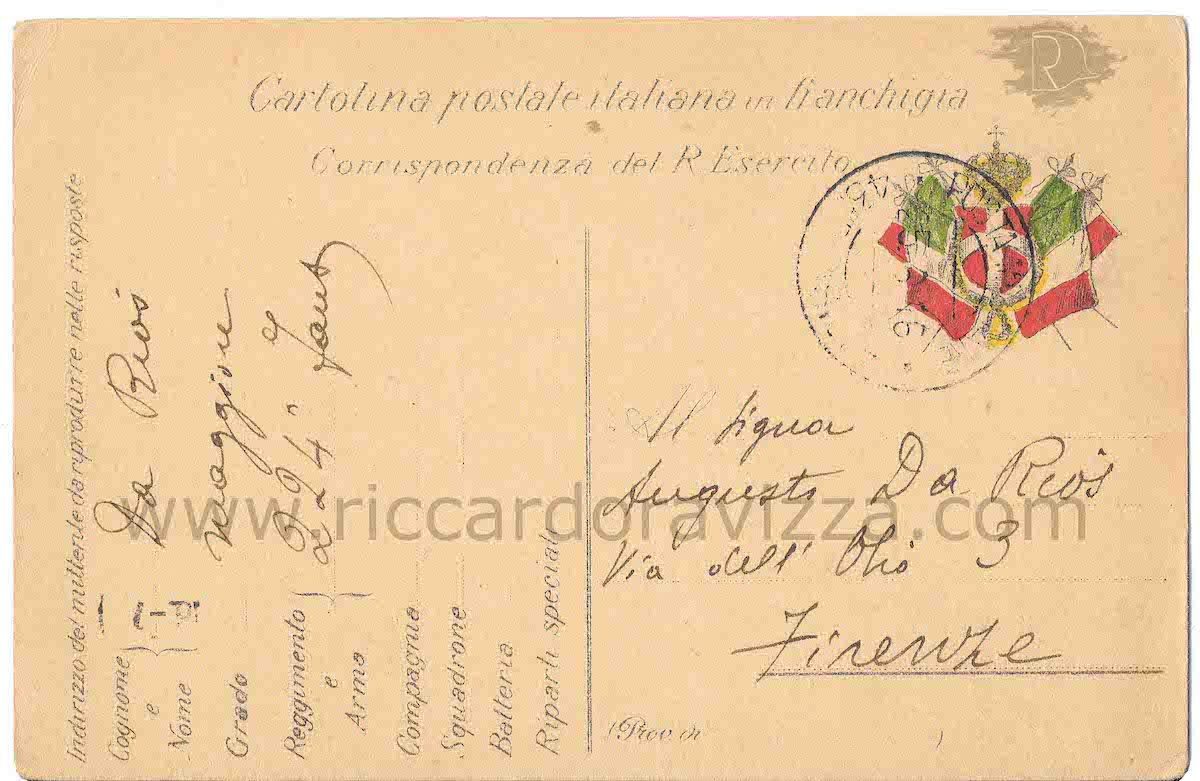 R
Cartolina postale italiana in franchigia
Corrispondenza del R. Esercito
Indirizzo del mittente da riprodurre nelle risposte
Cognome
e
Nome
Da Rios
Grado
maggiore
Reggimento
e
Arma
224° Fant
Compagnia
Squadrone
Batteria
Riparti speciali
Al Signor
Augusto Da Rios
Via dell' Olio 3
Firenze
(Prov di )
www.riccardoravizza.com